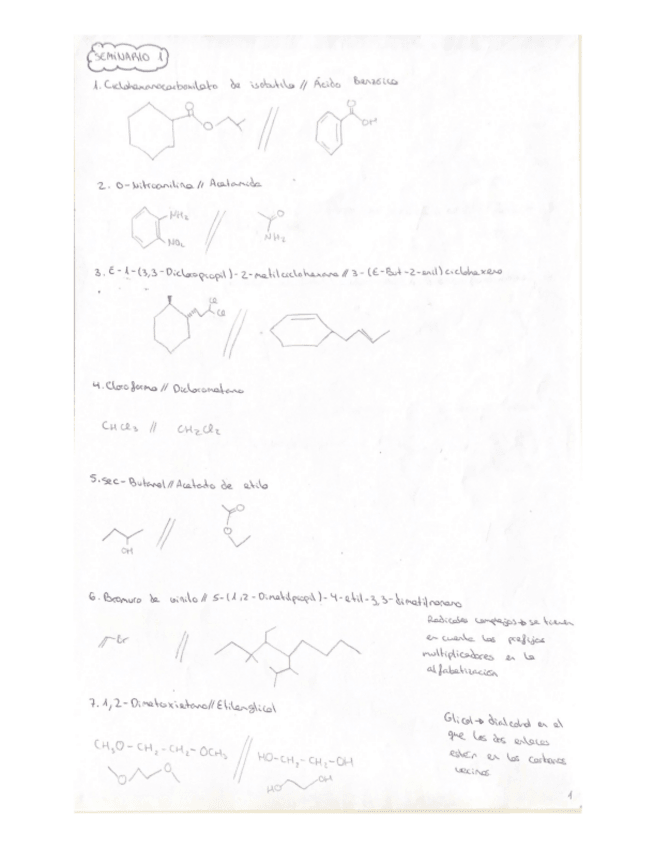 SEMINARIO 1
1. Ciclohexanocarboxilato de isobutilo // Ácido Benzoico
O
O
O
OH
2. O-Nitroanilina // Acetamida
NH2
NO2
O
NH2
3. E-1-(3,3-Dicloropropil)-2-metilciclohexano // 3-(E-But-2-enil)ciclohexeno
Cl
Cl
4. Cloroformo // Diclorometano
CHCl3 // CH2Cl2
5. sec-Butanol // Acetato de etilo
OH
O
O
6. Bromuro de vinilo // 5-(1,2-Dimetilpropil)-4-etil-3,3-dimetilnonano
Br
Radicales complejos → se tienen
en cuenta los prefijos
multiplicadores en la
alfabetización
7. 1,2-Dimetoxietano // Etilenglicol
CH3O-CH2-CH2-OCH3
HO-CH2-CH2-OH
O
O
HO
OH
Glicol → dialcohol en el
que los dos enlaces
están en los carbonos
vecinos
1